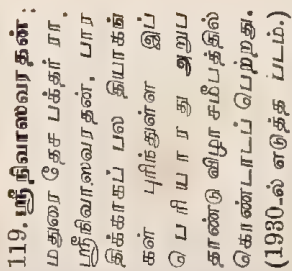 119. ஸ்ரீநிவாஸவரதன்:
மதுரை தேச பக்தர் ரா.
ஸ்ரீநிவாஸவரதன். பார
திக்காகப் பல தியாகங்
கள் புரிந்துள்ள இப்
பெரியாரது அறுப
தாண்டு விழா சமீபத்தில்
கொண்டாடப் பெற்றது.
(1930-ல் எடுத்த படம்.)